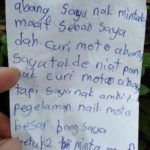 abang saya nak mintak
maaf sebab saya
dah curi moto abang
saya takde niat pon
nak curi moto abang
tapi saya nak ambil
pegelaman naik moto
besar bang saya
betul2 minta